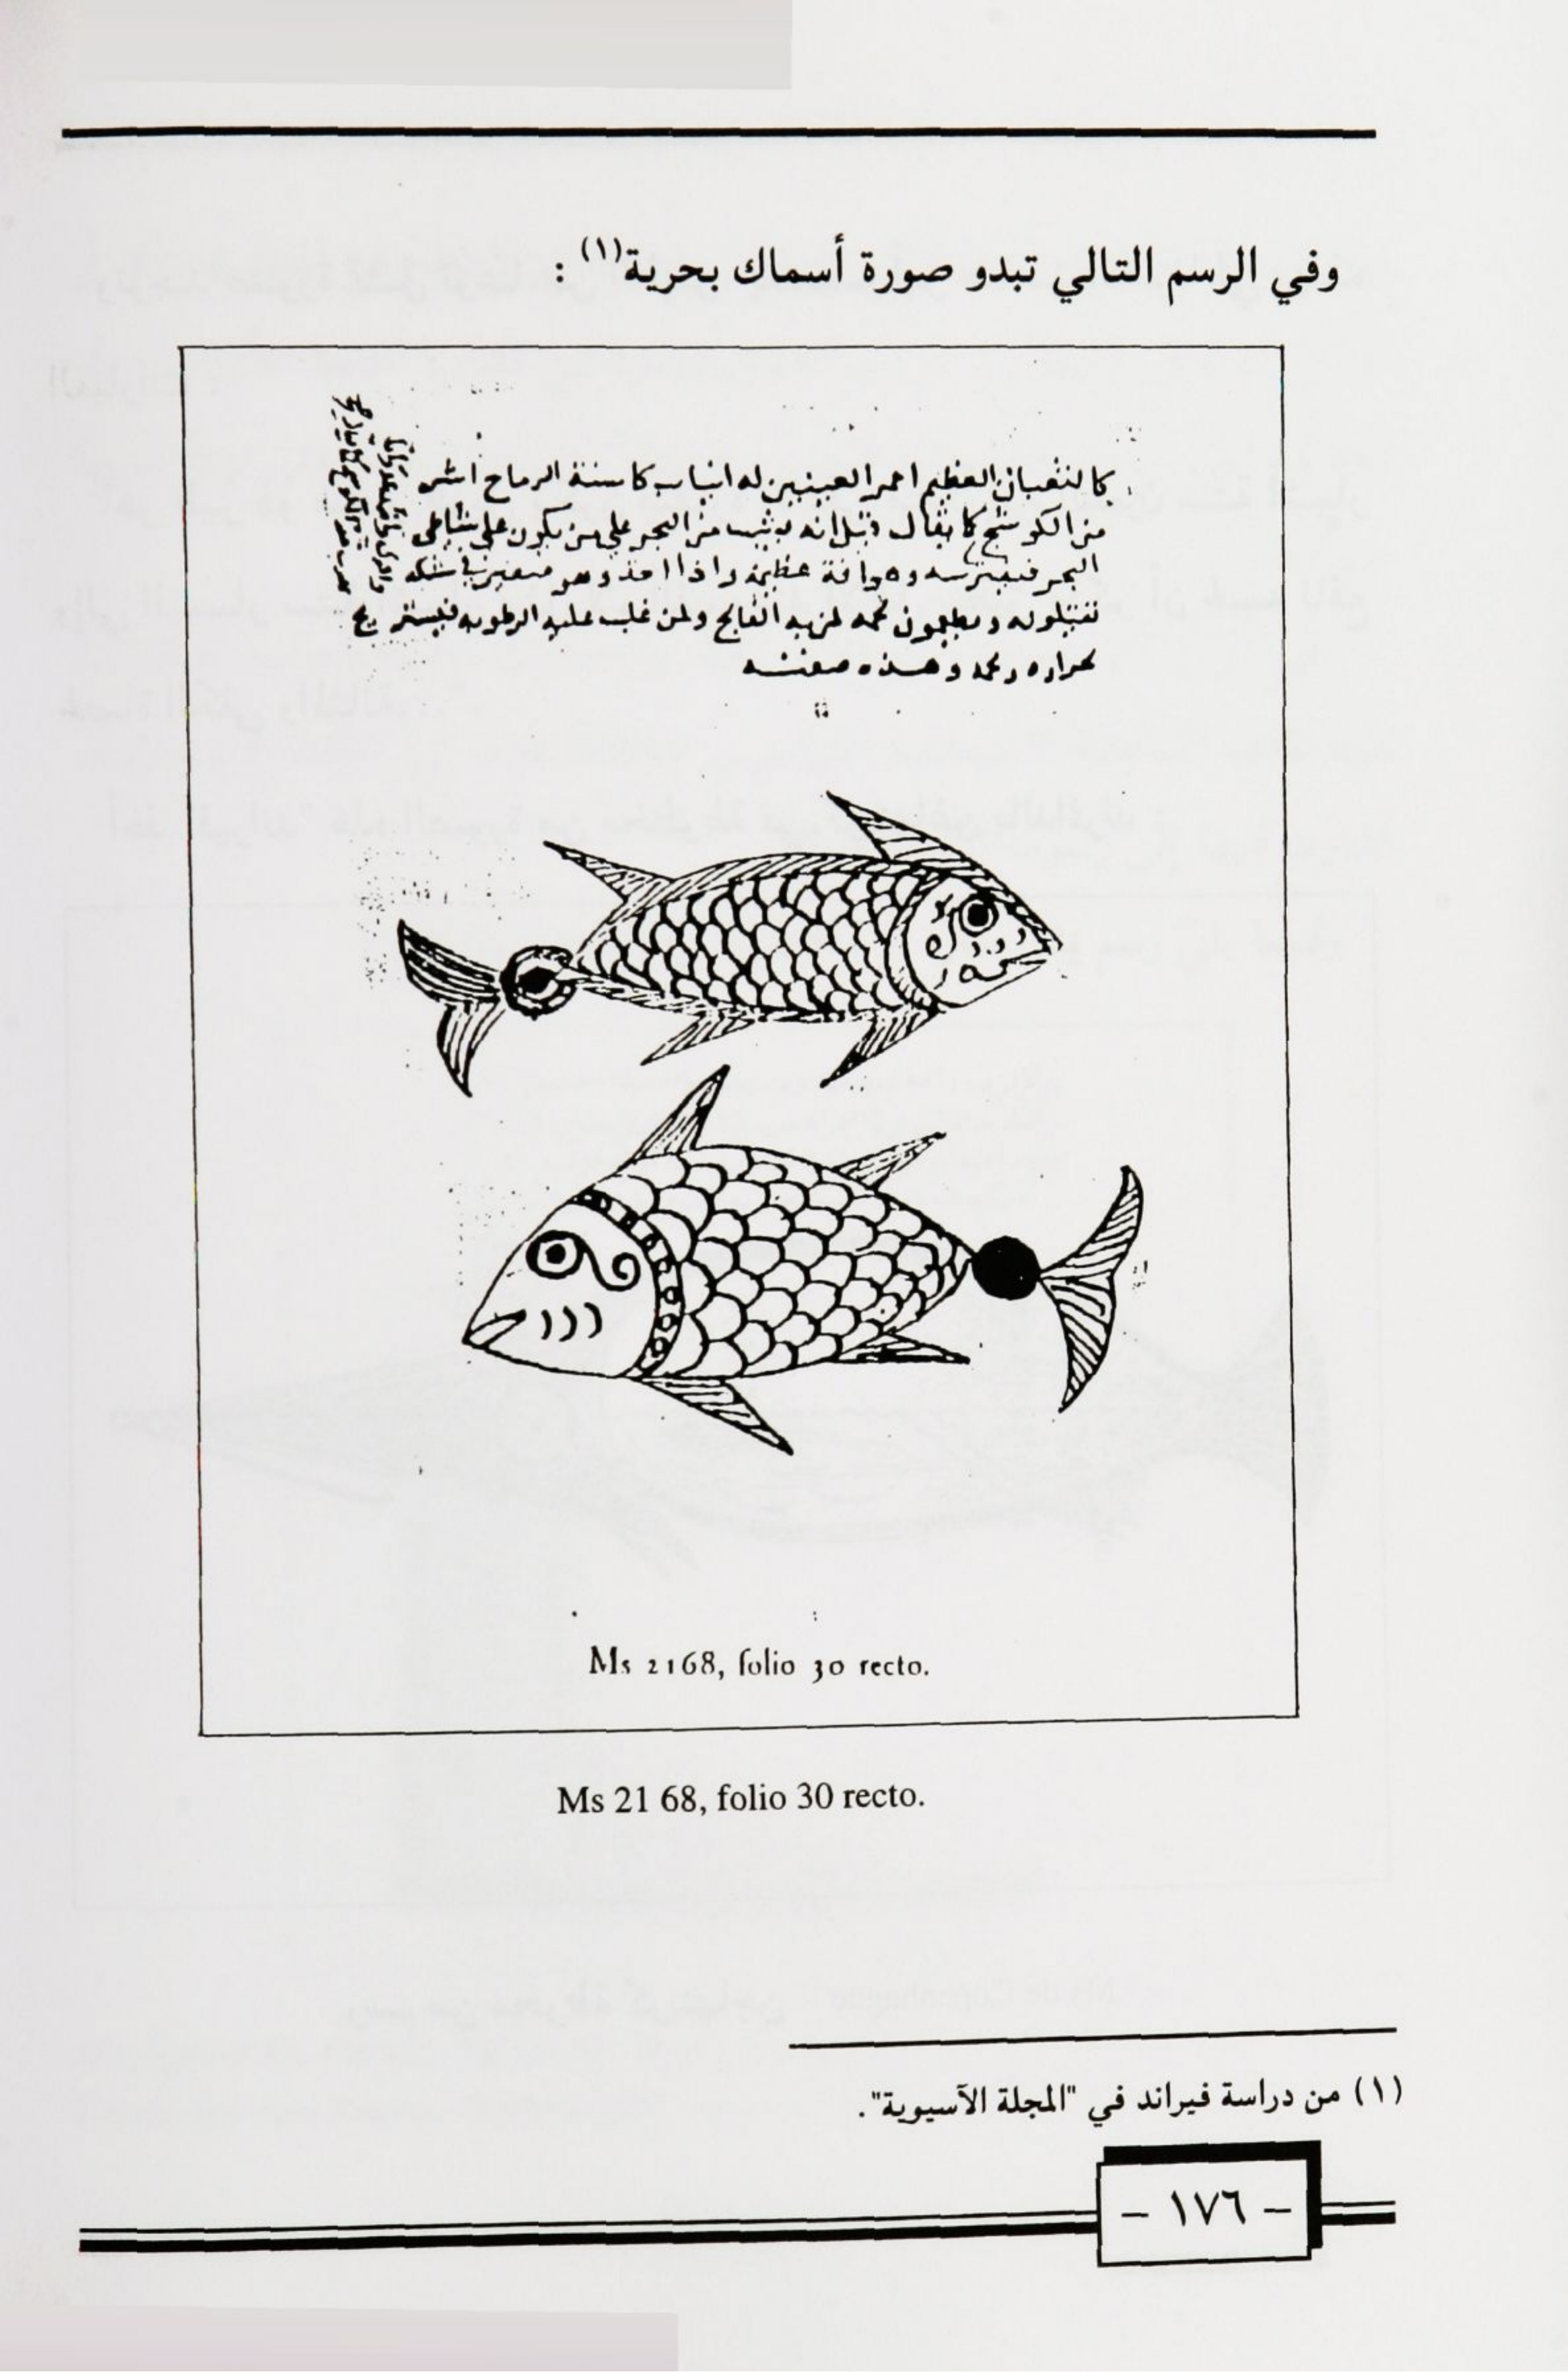 وفي الرسم التالي تبدو صورة أسماك بحرية(١) :
كالثعبان العظيم احمر العينين له انياب كاسنة الرماح اشر
من الكوسج كا يقال قيل انه يثب من البحر على من يكون على شاطى
البحر فيفترسه وهو افة عظيمة واذا اخذ وهو صغير في شبكه
يقتلونه ويطعمون لحمه لمن به الفالج ولمن غلب عليه الرطوبه فيستريح
لحراره لحمه وهذه صفته
Ms 2168, folio 30 recto.
Ms 21 68, folio 30 recto.
(١) من دراسة فيراند في "المجلة الآسيوية".
– ١٧٦ –